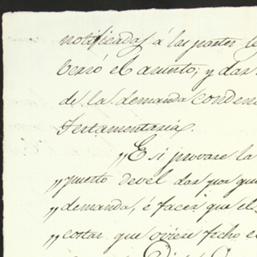 notificada á las partes le
beró el asunto, y das
de la demanda conden
Testamentaria.
"E si provare la
"puesto devel dar por qui
"demanda, ó facer que el
"costas, que oviere fecho e